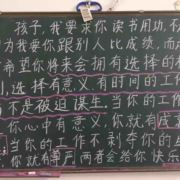 孩子,我要求你读书用功,不
为我要你跟别人比成绩,而
希望你将来会拥有选择的
利,选择有意义,有时间的工作
不是被迫谋生。当你的工作
你心中有意义,你就有成
当你的工作不剥夺你的
你就有尊严 两者会给你 快乐